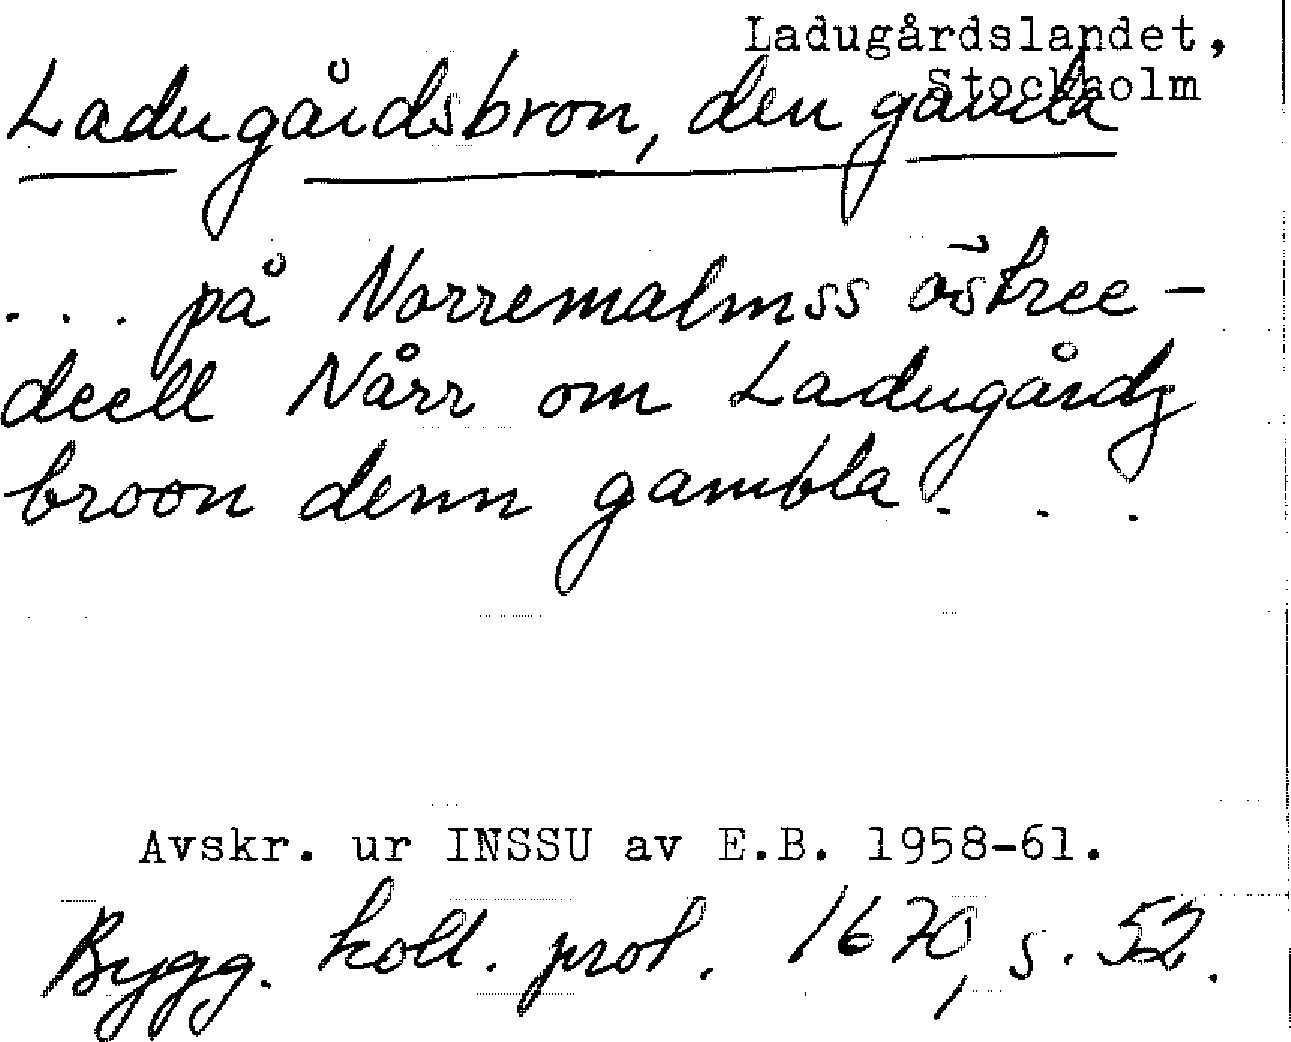 Ladugårdslandet,
Stockholm
Ladugårdsbron, den gamla
... på Norremalmss östree-
deell Nårr om Ladugårdz
broon denn gambla . . .
Avskr. ur INSSU av E.B. 1958-61.
Bygg. koll. prot. 1670, s. 52.